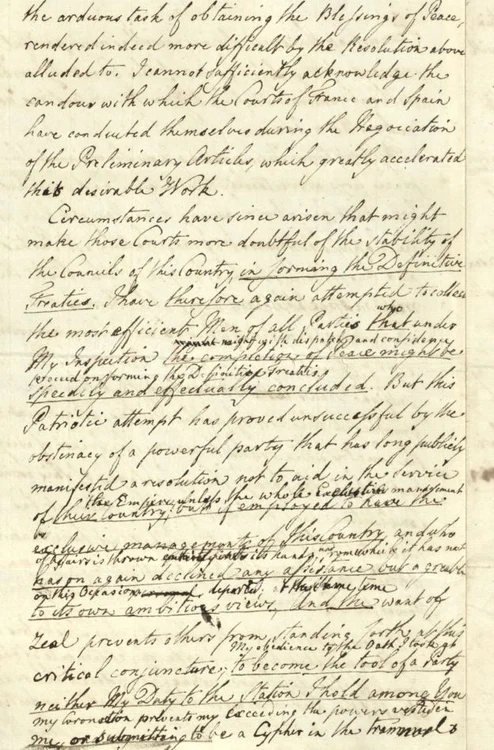 the arduous task of obtaining the Blessings of Peace,
rendered indeed more difficult by the Resolution above
alluded to. I cannot sufficiently acknowledge the
candour with which the Courts of France and Spain
have conducted themselves during the Negociation
of the Preliminary Articles, which greatly accelerated
this desirable Work.
Circumstances have since arisen that might
make those Courts more doubtful of the stability of
the Councils of this Country in forming the Definitive
Treaties. I have therefore again attempted to collect
the most efficient Men of all Parties that under
who
might with dispatch and confidence
My Inspection the completion of Peace might be
proceed on forming the Definitive Treaties
speedily and effectually concluded. But this
Patriotic attempt has proved unsuccessful by the
obstinacy of a powerful party that has long publicly
manifested a resolution not to aid in the Service
the Empire unless the whole Executive management
of their Country, but if employed to have the
exclusive management of this Country, and who
of affairs is thrown into its hands, it has not
has on again declined any assistance but a
on this Occasion departed; at the same time
to its own ambitious views, And the want of
Zeal prevents others from standing forth at this
My obedience to the Oath I took at
critical conjuncture; to become the tool of a Party
neither My Duty to the Station I hold among You
my Coronation prevents my exceeding the powers vested in
me, or submitting to be a Cypher in the trammels